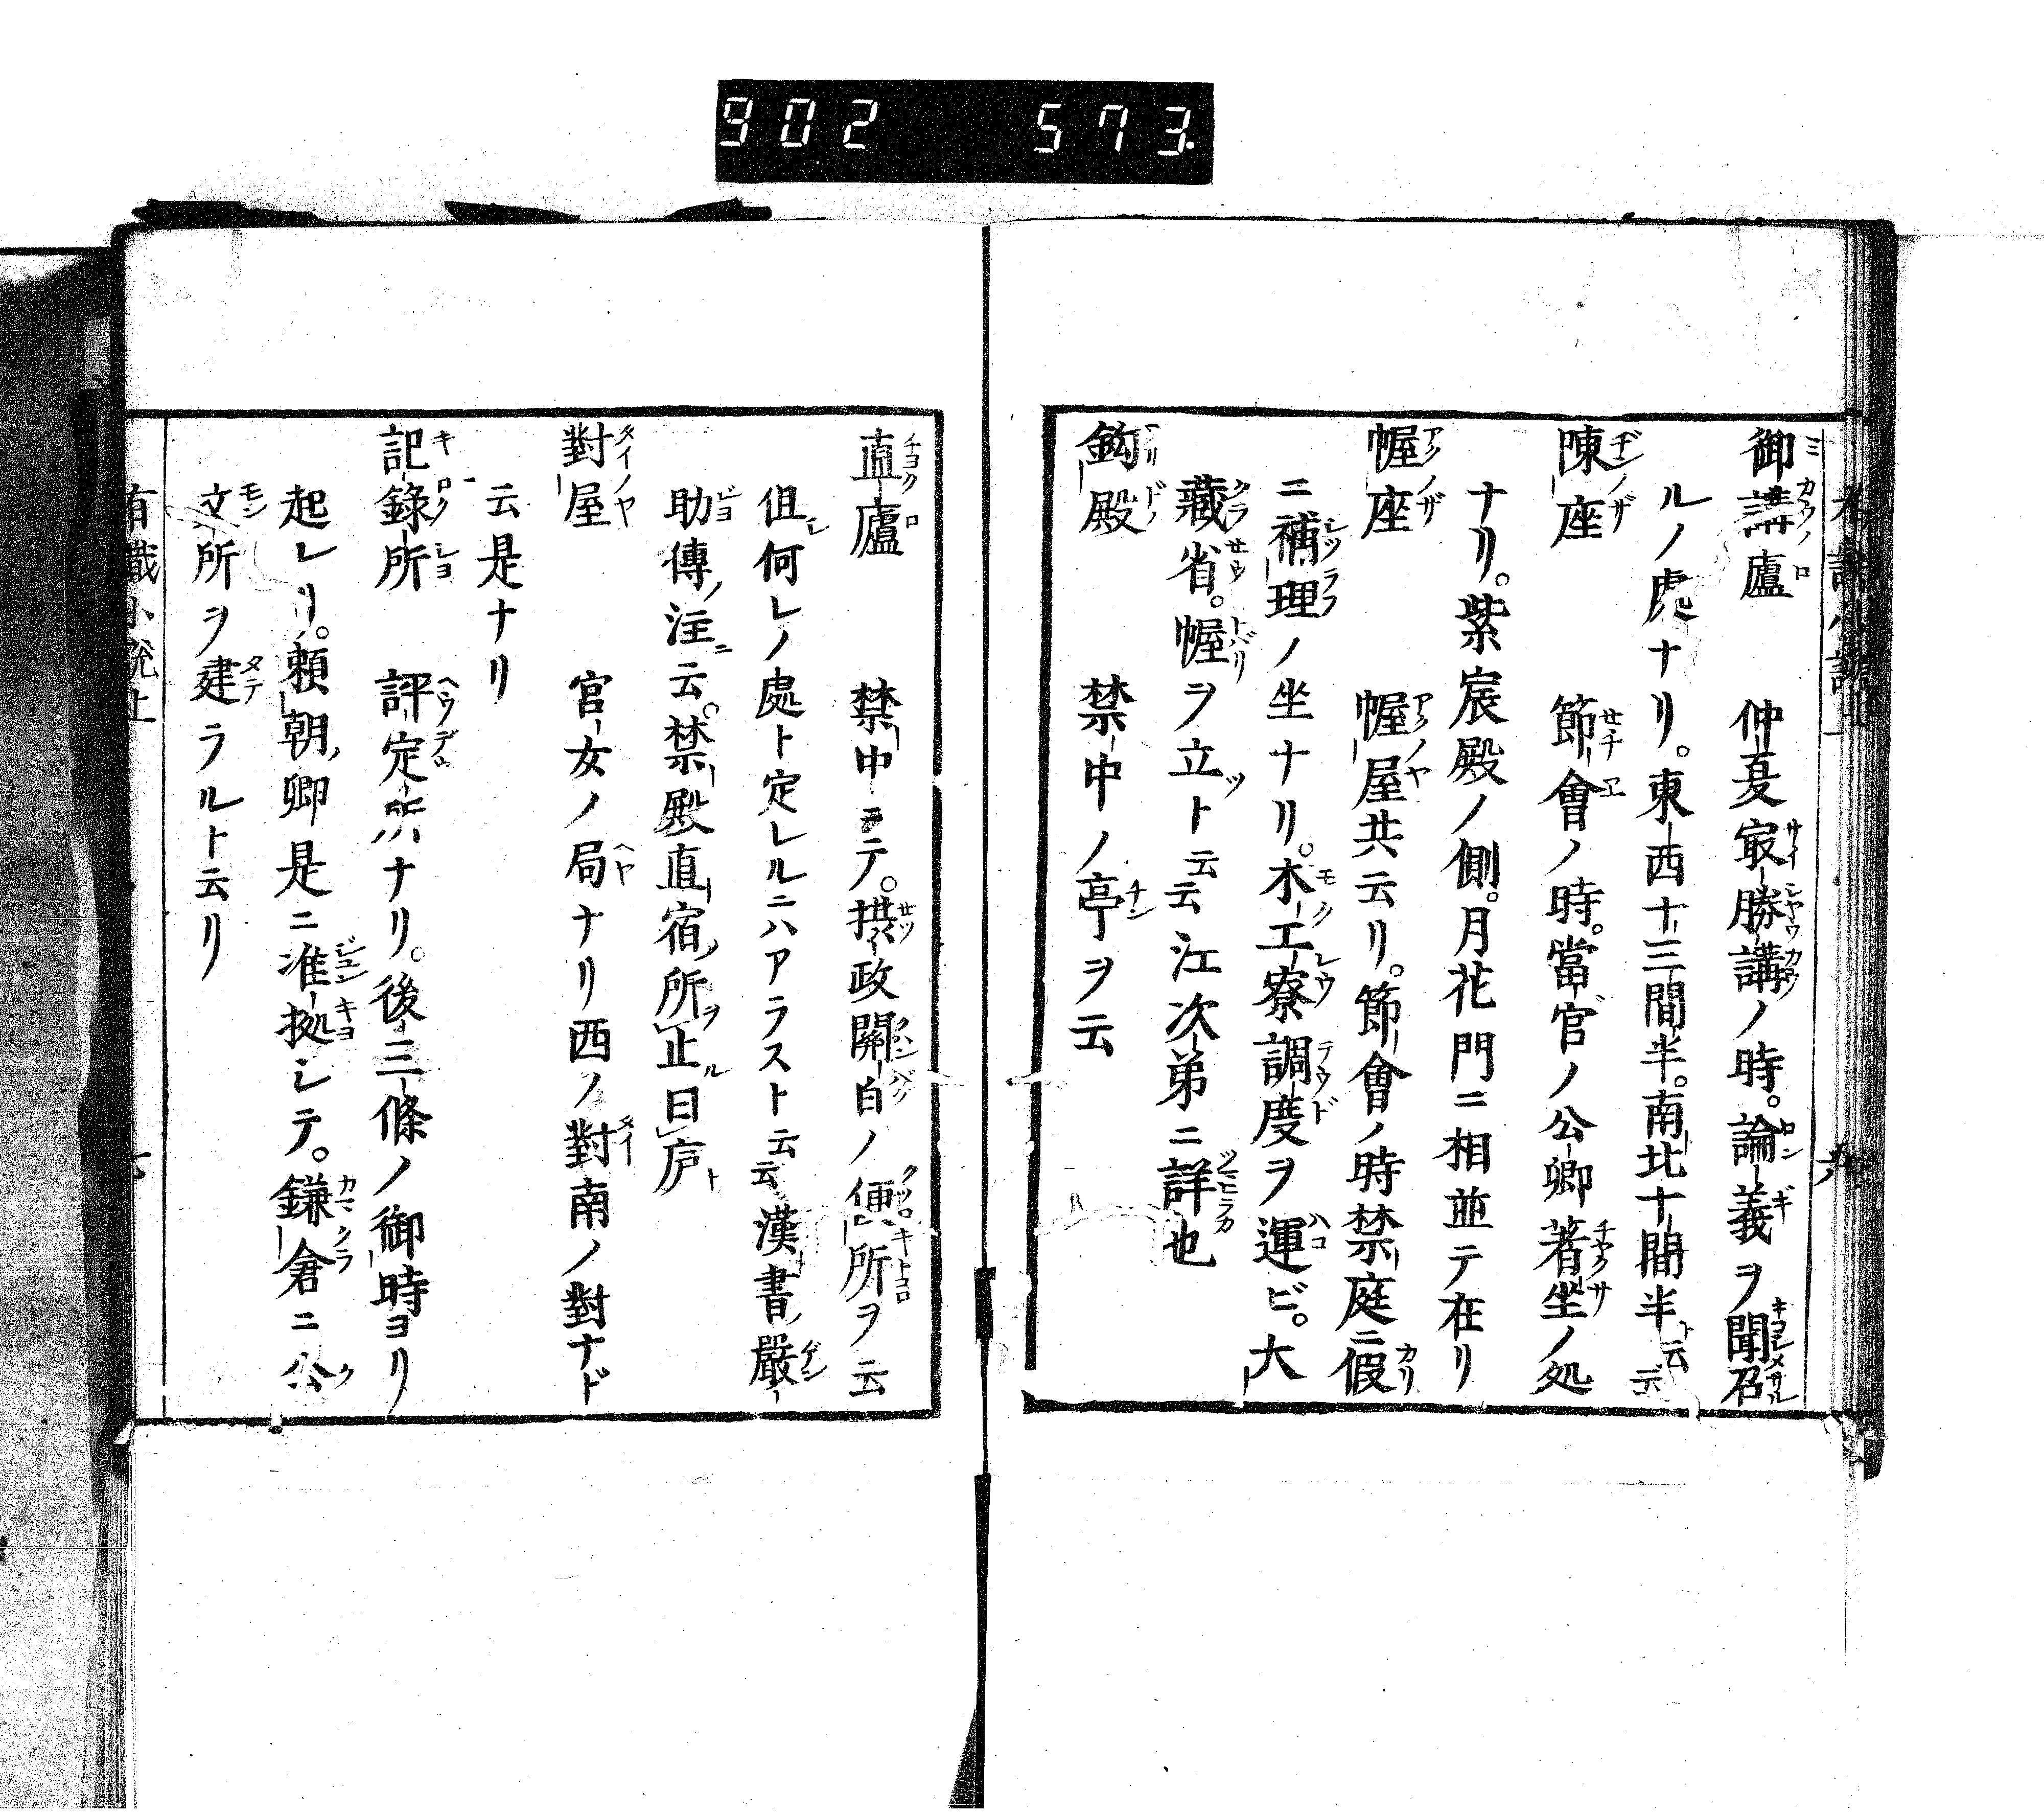 902 573.
御講廬 仲夏㝡勝講ノ時。論義ヲ聞召
ルノ處ナリ。東西十三間半。南北十間半ト云云
陳座 節會ノ時。當官ノ公卿著坐ノ処
ナリ。紫宸殿ノ側。月花門ニ相並テ在リ
幄座 幄屋共云リ。節會ノ時禁庭ニ假
ニ補理ノ坐ナリ。木工寮調度ヲ運ビ。大
藏省。幄ヲ立ツト云云江次第ニ詳也
鈎殿 禁中ノ亭ヲ云
直廬 禁中ニテ。摂政關白ノ便所ヲ云
但シ何レノ處ト定レルニハアラスト云云漢書嚴
助傳ノ注ニ云。禁殿直宿ノ所ヲ止ル曰庐ト
對屋 官女ノ局ナリ西ノ對南ノ對ナド
云是ナリ
記錄所 評定所ナリ。後三條ノ御時ヨリ
起レリ。頼朝卿是ニ准拠シテ。鎌倉ニ公
文所ヲ建ラルト云リ
有職小説上